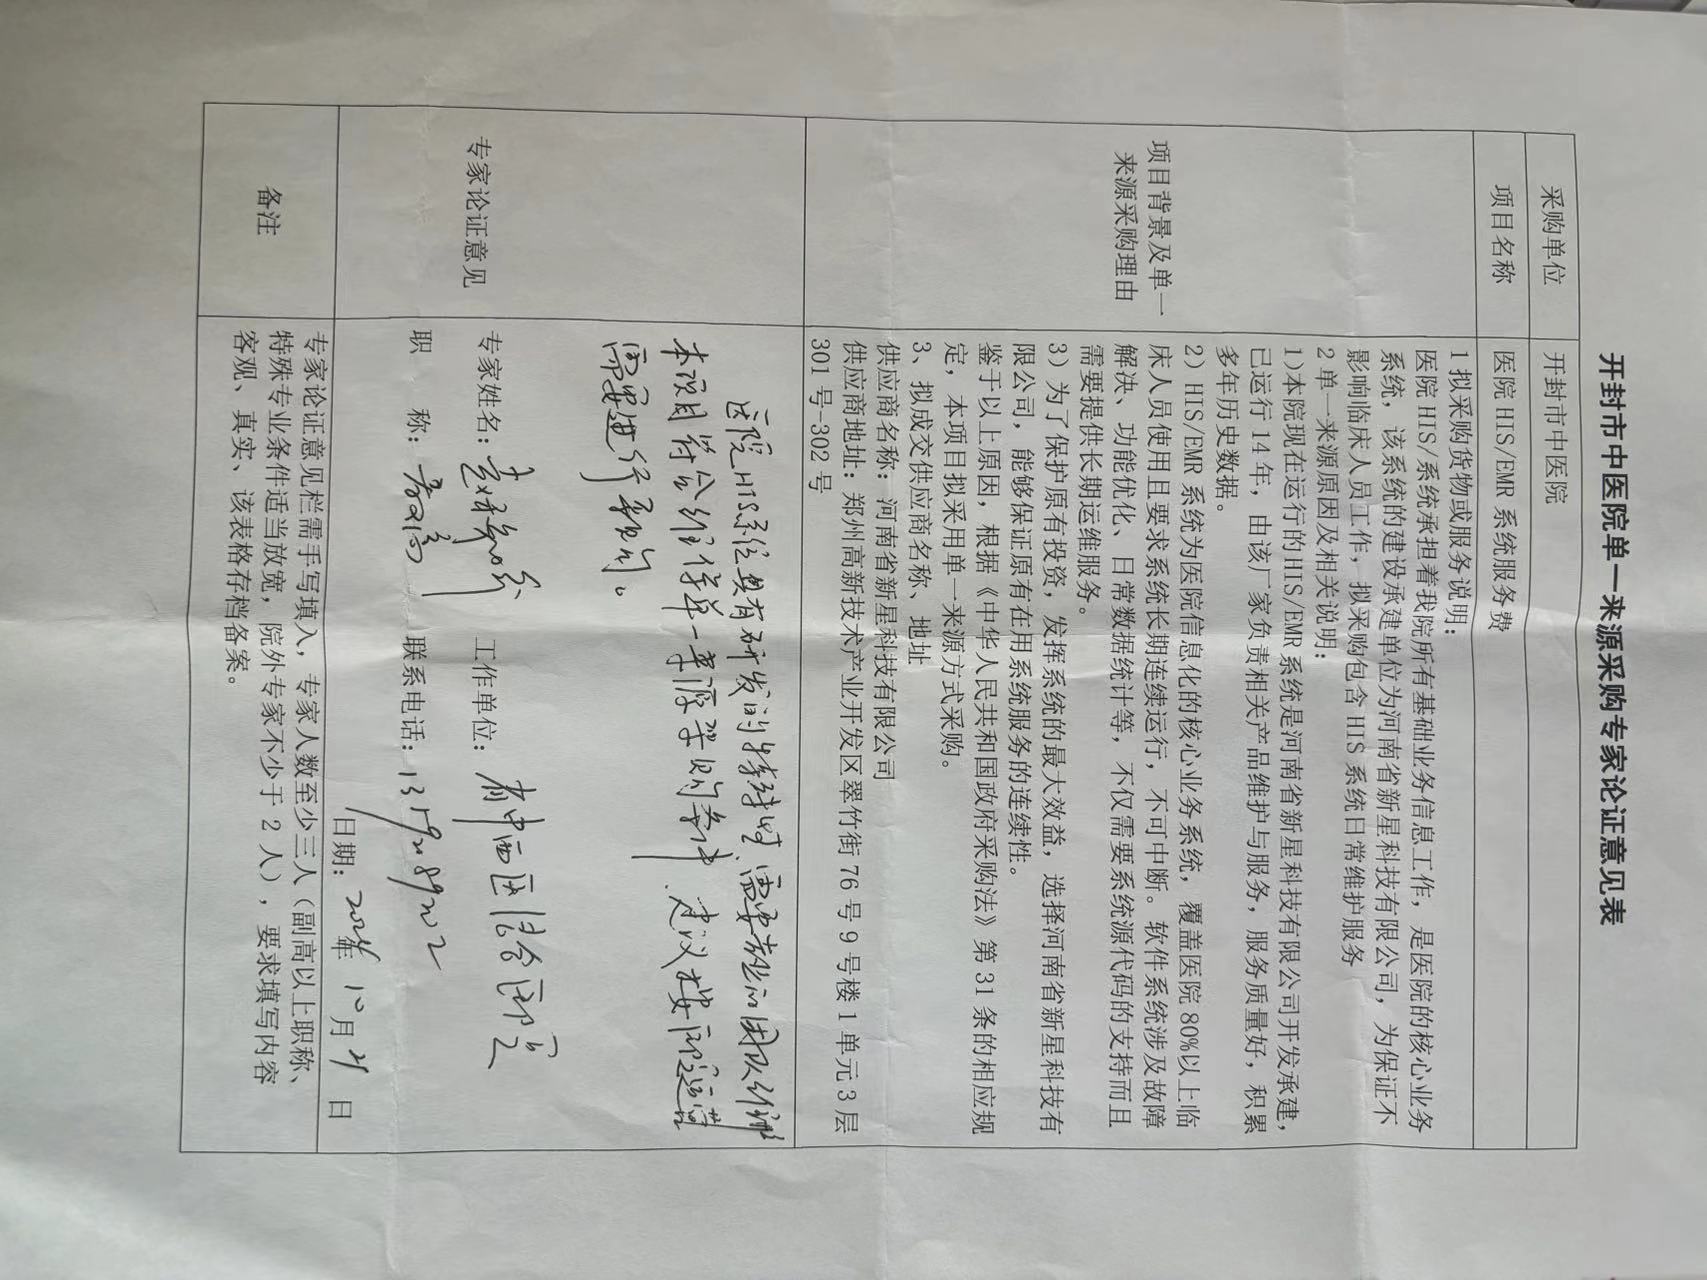 开封市中医院单一来源采购专家论证意见表
采购单位
开封市中医院
项目名称
医院 HIS/EMR 系统服务费
项目背景及单一
来源采购理由
1 拟采购货物或服务说明：
医院 HIS/系统承担着我院所有基础业务信息工作，是医院的核心业务
系统，该系统的建设承建单位为河南省新星科技有限公司，为保证不
影响临床人员工作，拟采购包含 HIS 系统日常维护服务
2 单一来源原因及相关说明：
1)本院现在运行的HIS/EMR 系统是河南省新星科技有限公司开发承建，
已运行 14 年，由该厂家负责相关产品维护与服务，服务质量好，积累
多年历史数据。
2）HIS/EMR 系统为医院信息化的核心业务系统，覆盖医院 80%以上临
床人员使用且要求系统长期连续运行，不可中断。软件系统涉及故障
解决、功能优化、日常数据统计等，不仅需要系统源代码的支持而且
需要提供长期运维服务。
3）为了保护原有投资，发挥系统的最大效益，选择河南省新星科技有
限公司，能够保证原有在用系统服务的连续性。
鉴于以上原因，根据《中华人民共和国政府采购法》第 31 条的相应规
定，本项目拟采用单一来源方式采购。
3、拟成交供应商名称、地址
供应商名称：河南省新星科技有限公司
供应商地址：郑州高新技术产业开发区翠竹街 76 号 9 号楼 1 单元 3 层
301 号-302 号
专家论证意见
医院HIS系统具有研发的特殊性，需要专业的团队维护
本项目符合维保单一来源采购条件，建议按院运营
需要进行采购。
专家姓名： 工作单位：
职 称：高 联系电话：
日期：2024年10月21日
备注
专家论证意见栏需手写填入，专家人数至少三人（副高以上职称、
特殊专业条件适当放宽，院外专家不少于 2 人），要求填写内容
客观、真实、该表格存档备案。